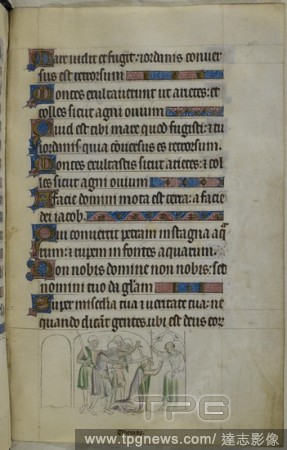 Mare vidit et fugit: iordanis conver
sus est retrorsum
Montes exultaverunt ut arietes: et
colles sicut agni ovium
Quid est tibi mare quod fugisti: et tu
iordanis quia conversus es retrorsum.
Montes exultastis sicut arietes: et col
les sicut agni ovium
A facie domini mota est terra: a facie
dei iacob.
Qui convertit petram in stagna aq
rum: et rupem in fontes aquarum.
Non nobis domine non nobis: set
nomini tuo da glam
Super misericordia tua et veritate tua: ne
quando dicant gentes ubi est deus eor
TPG
www.tpgnews.com / 達志影像